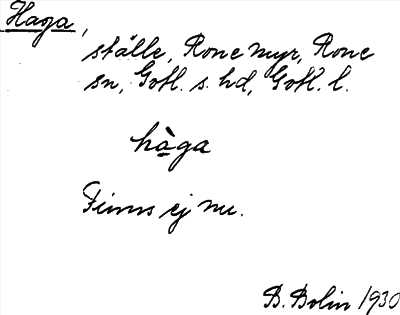 Haga,
ställe, Rone myr, Rone
sn, Gotl. s. hd, Gotl. l.
hàga
Finns ej nu.
B. Bolin 1930